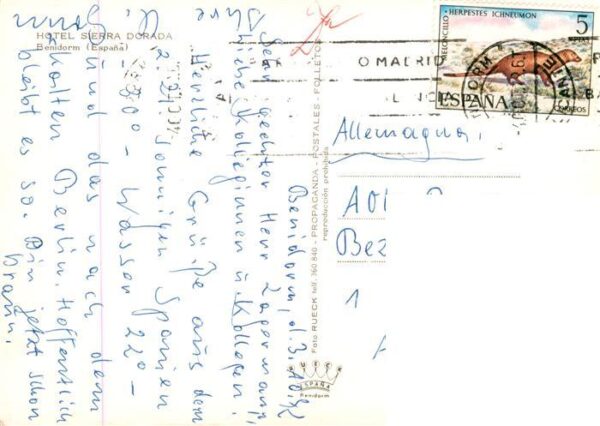 HOTEL SIERRA DORADA
Benidorm (España)
Benidorm, d. 3.10.72
Sehr geehrter Herr Lagermann,
liebe Kolleginnen u. Kollegen!
Herzliche Grüße aus dem
z. Zt. sonnigen Spanien
30° - Wasser 22° -
und das nach dem
kalten Berlin. Hoffentlich
bleibt es so. Bin jetzt schon
braun.
Ihre
Foto RUECK telf. 360 840 - PROPAGANDA - POSTALES - FOLLETOS
reproducción prohibida
RUECK
ESPAÑA
Benidorm
MELONCILLO - HERPESTES ICHNEUMON
5
PTAS
ESPAÑA
CORREOS
O MADRID
Allemagna,
Bez
1